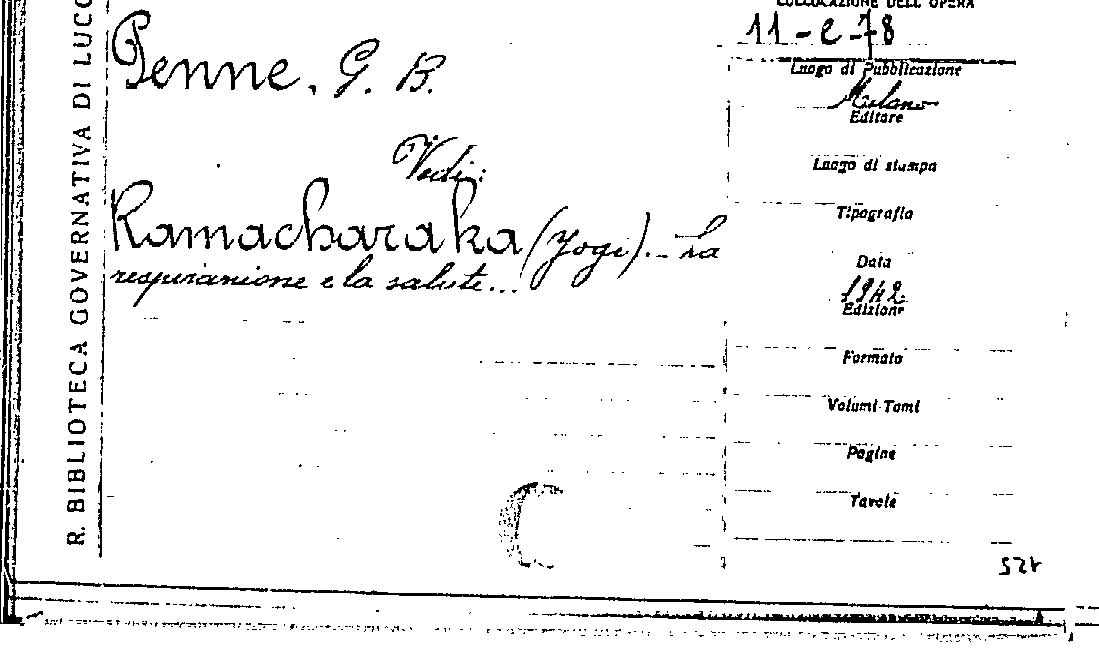 R. BIBLIOTECA GOVERNATIVA DI LUCC
Penne, G. B.
Vedi:
Ramacharaka (Yogi). - La
respirazione e la salute...
COLLOCAZIONE DELL'OPERA
11-e-78
Luogo di Pubblicazione
Milano
Editore
Luogo di stampa
Tipografia
Data
1942
Edizione
Formato
Volumi-Tomi
Pagine
Tavole